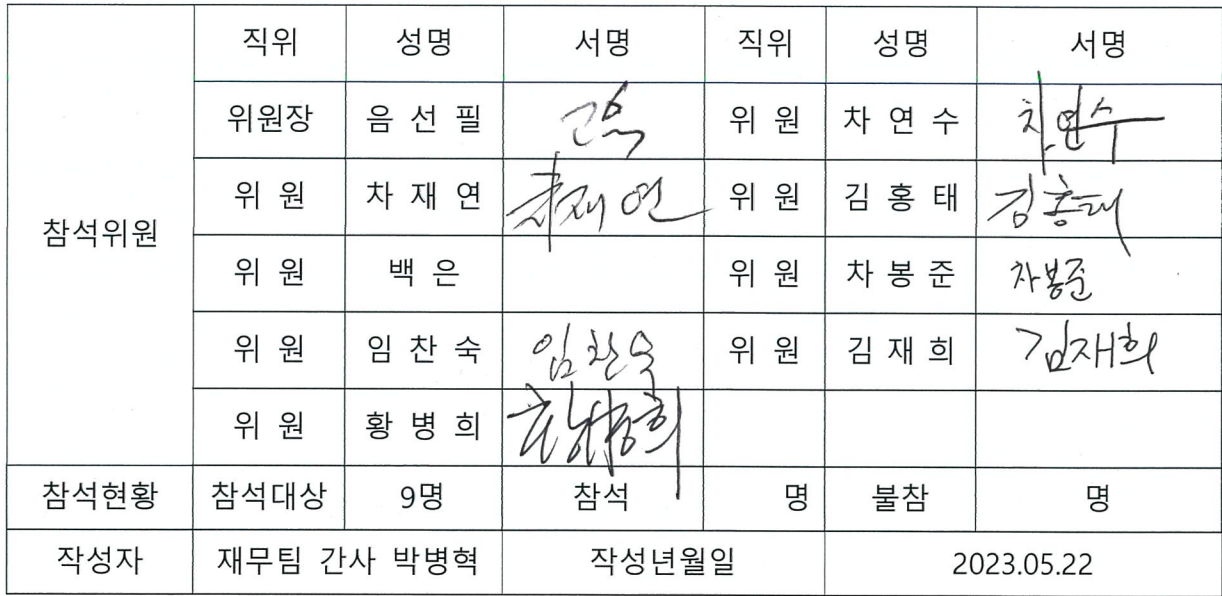 직위 성명 서명 직위 성명 서명
위원장 음 선 필 위 원 차 연 수 차연수
위 원 차 재 연 차재연 위 원 김 홍 태 김홍태
참석위원
위 원 백 은 위 원 차 봉 준 차봉준
위 원 임 찬 숙 임찬숙 위 원 김 재 희 김재희
위 원 황 병 희 황병희
참석현황 참석대상 9명 참석 명 불참 명
작성자 재무팀 간사 박병혁 작성년월일 2023.05.22